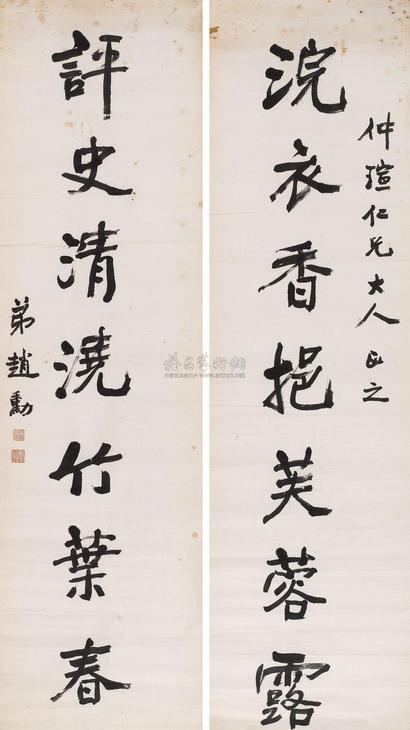 仲瑄仁兄大人正之
浣衣香挹芙蓉露
評史清澆竹葉春
弟趙勳
www.artron.net